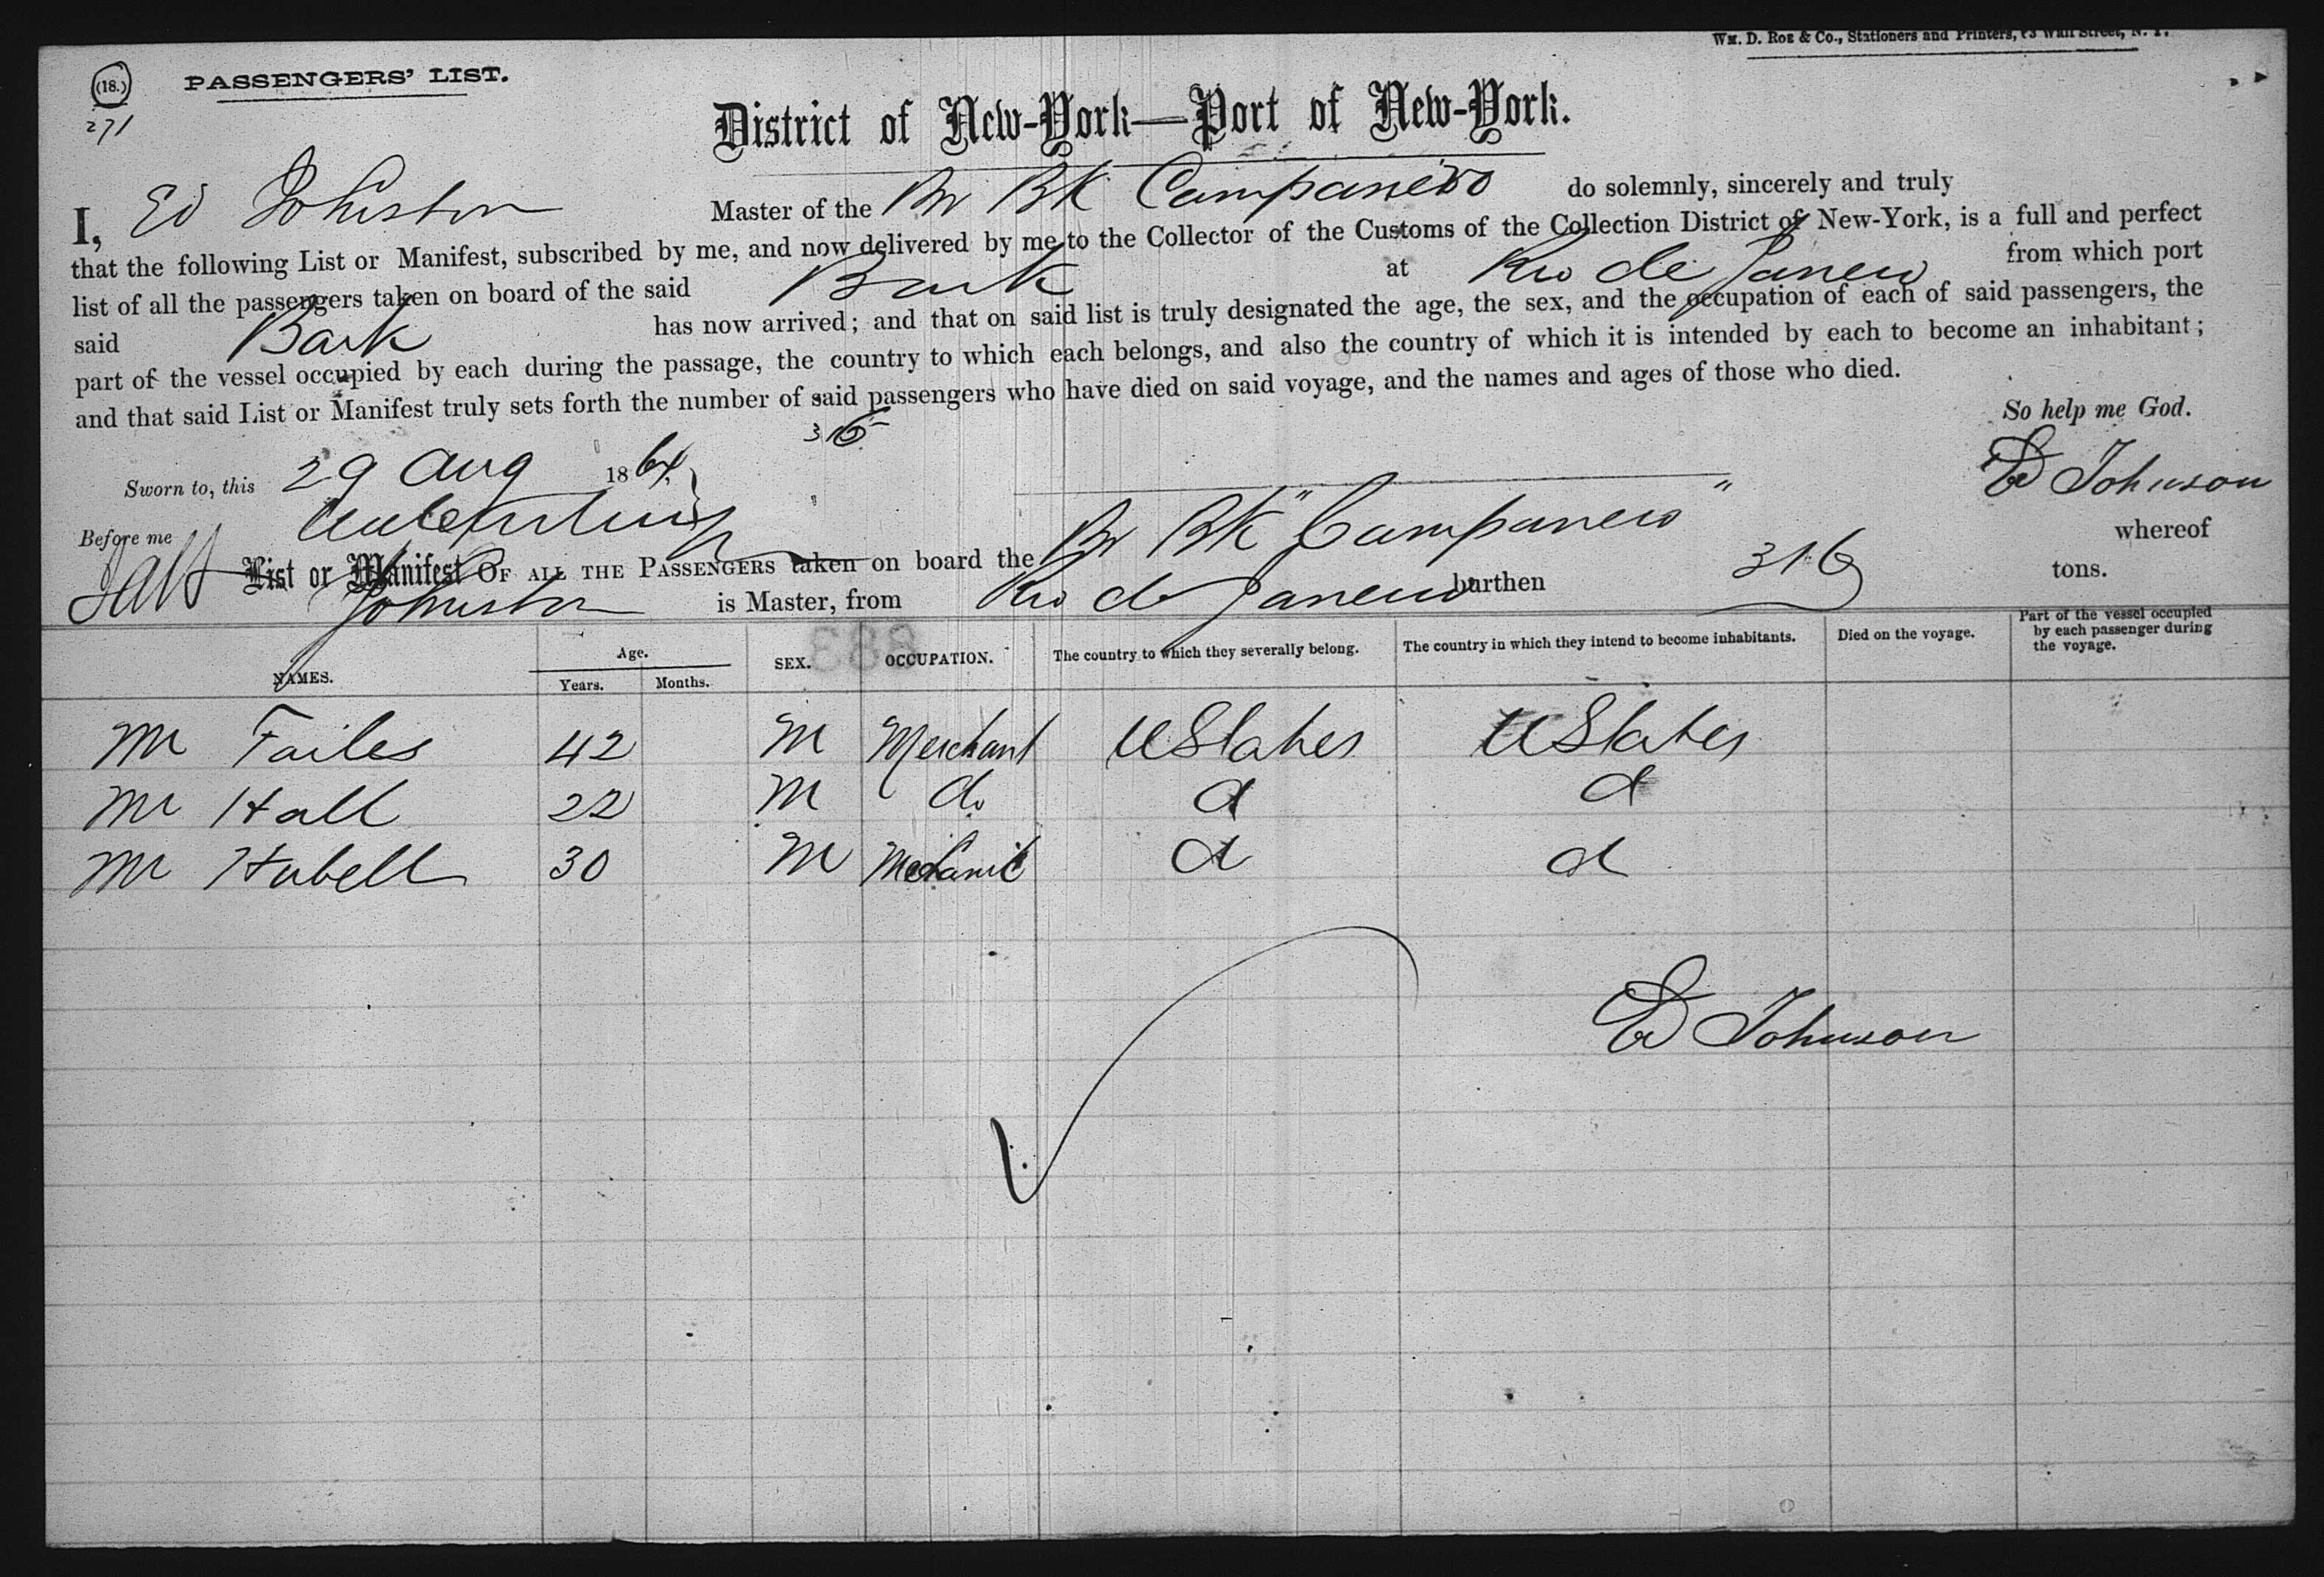 Wm. D. Roe & Co., Stationers and Printers, Wall Street, N. Y.
(18.) PASSENGERS' LIST.
271
District of New-York—Port of New-York.
I, Ed Johnston Master of the Br BK Campanero do solemnly, sincerely and truly
that the following List or Manifest, subscribed by me, and now delivered by me to the Collector of the Customs of the Collection District of New-York, is a full and perfect
list of all the passengers taken on board of the said Bark at Rio de Janeiro from which port
said Bark has now arrived; and that on said list is truly designated the age, the sex, and the occupation of each of said passengers, the
part of the vessel occupied by each during the passage, the country to which each belongs, and also the country of which it is intended by each to become an inhabitant;
and that said List or Manifest truly sets forth the number of said passengers who have died on said voyage, and the names and ages of those who died.
So help me God.
Sworn to, this 29 Aug 1864,
Ed Johnson
Before me
List or Manifest OF ALL THE PASSENGERS taken on board the Br BK "Campanero" whereof
Johnston is Master, from Rio de Janeiro burthen 316 tons.
NAMES. Age. Years. Months. SEX. OCCUPATION. The country to which they severally belong. The country in which they intend to become inhabitants. Died on the voyage. Part of the vessel occupied by each passenger during the voyage.
883
Mr Failes 42 M Merchant U States U States
Mr Hall 22 M do d d
Mr Hubell 30 M Mechanic d d
Ed Johnson